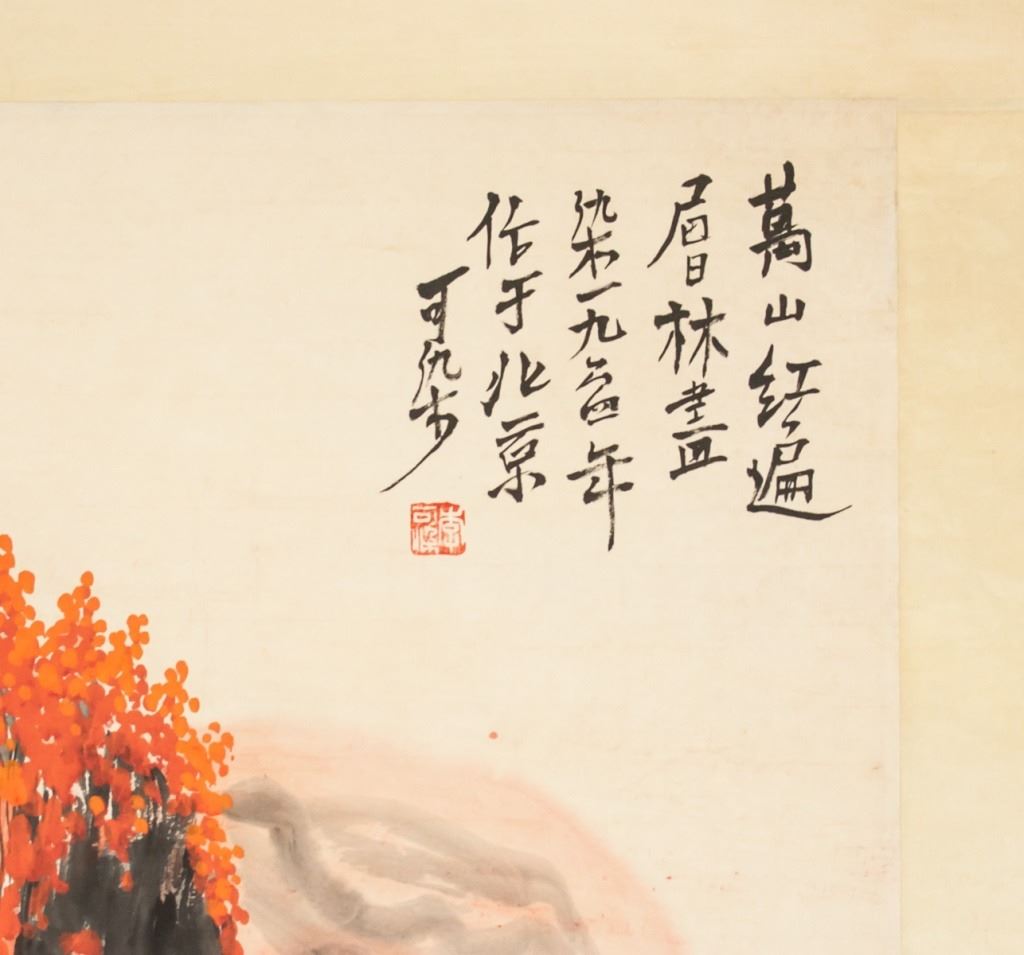 萬山紅遍
層林盡
染一九六四年
作于北京
可染
李可染